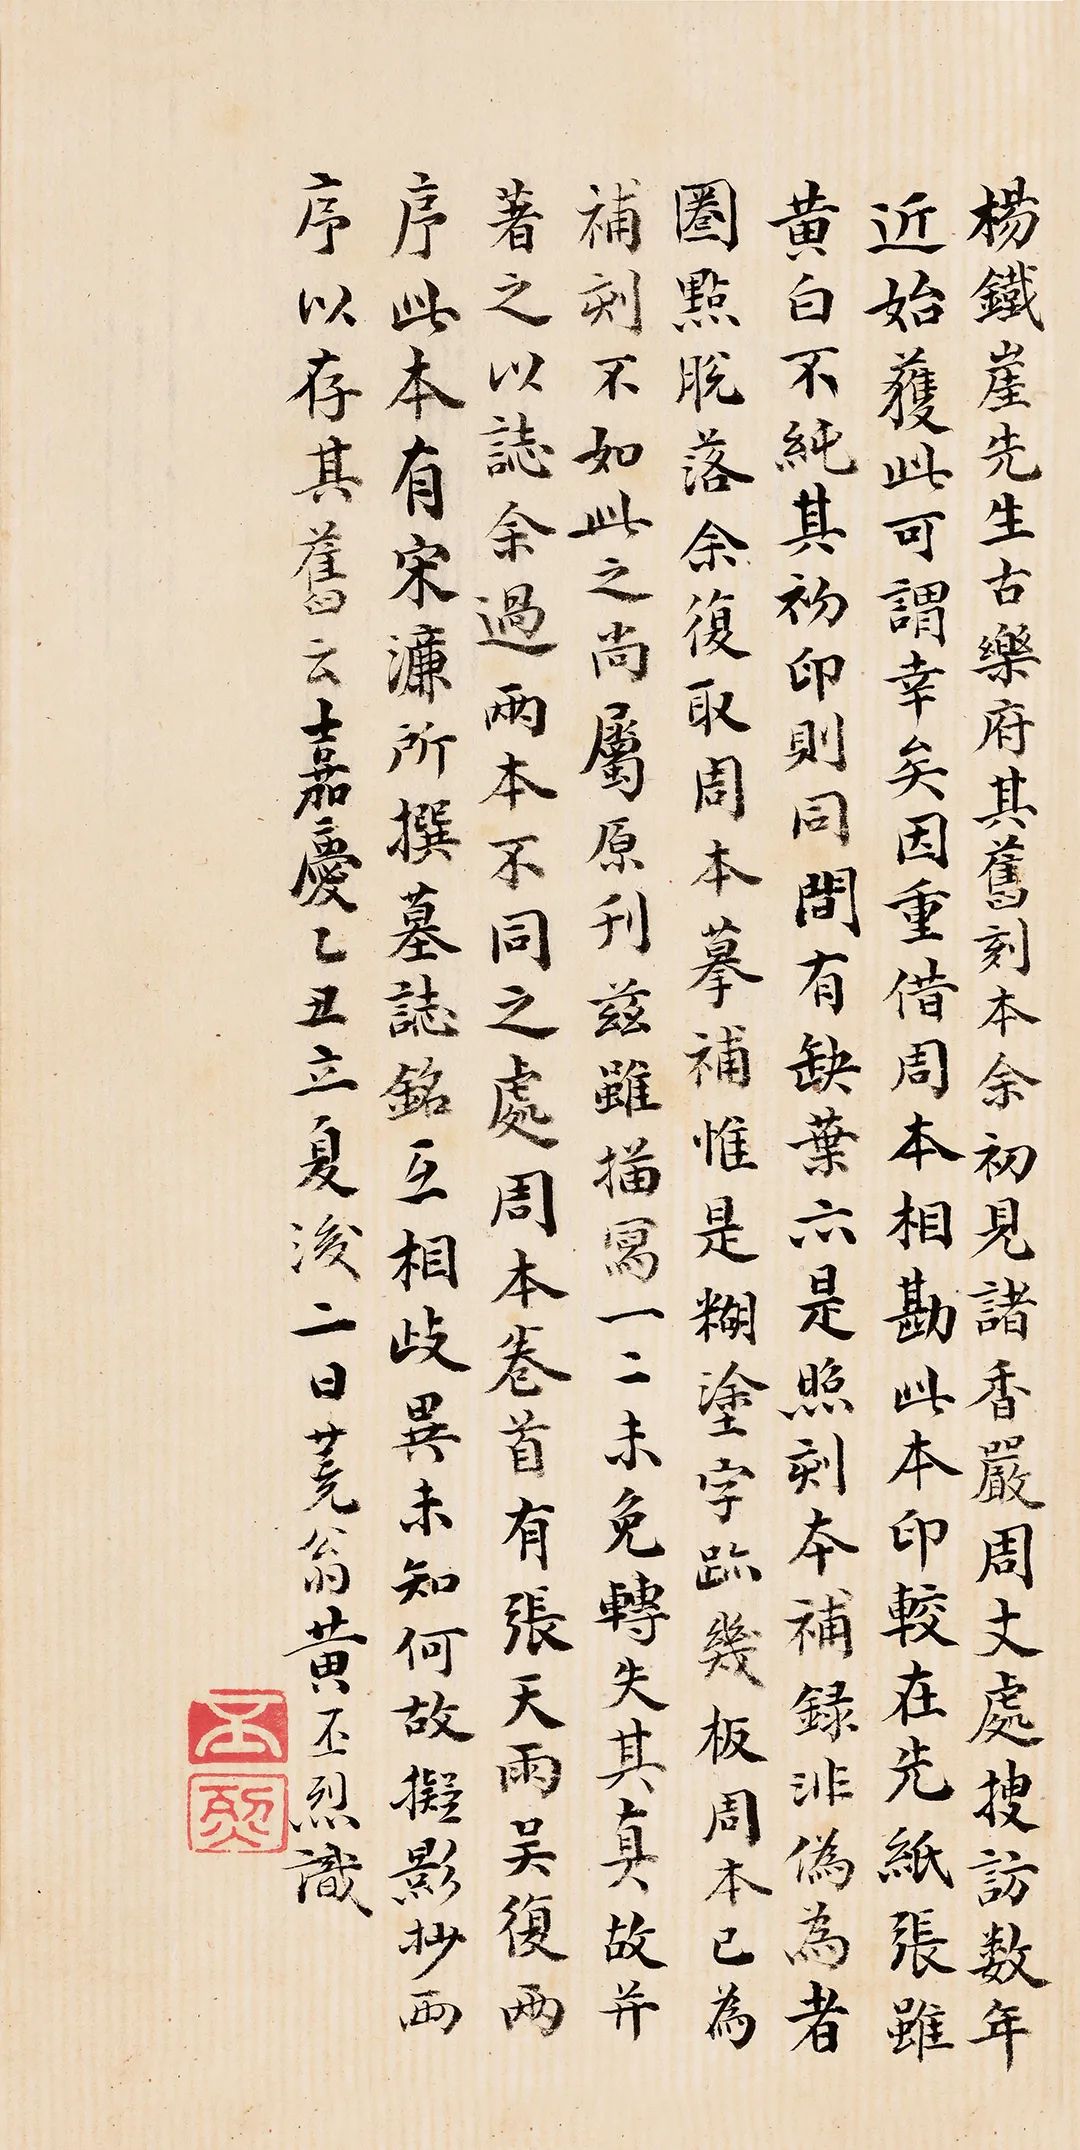 楊鐵崖先生古樂府其舊刻本余初見諸香嚴周丈處搜訪数年
近始獲此可謂幸矣因重借周本相勘此本印較在先紙張雖
黄白不純其初印則同間有缺葉六是照刻本補録非偽為者
圈點脫落余復取周本摹補惟是糊塗字跡幾板周本已為
補刻不如此之尚屬原刊兹雖描寫一二未免轉失其真故并
著之以誌余過兩本不同之處周本卷首有張天雨吴復两
序此本有宋濂所撰墓誌銘互相歧異未知何故擬影抄两
序以存其舊云嘉慶乙丑立夏後二日蕘翁黄丕烈識
丕烈